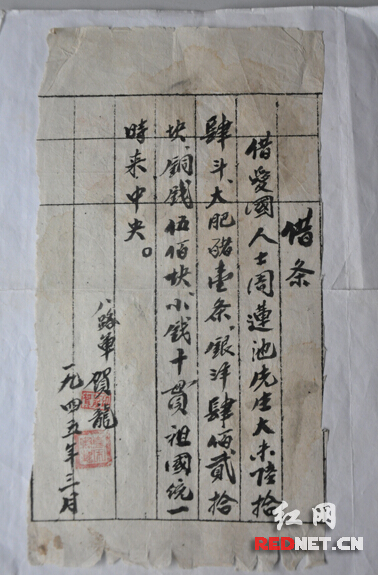 借条
借爱國人士周蓮池先生大米陸拾
肆斗、大肥豬壹条、銀洋肆佰貳拾
块、铜钱伍佰块、小钱十貫、祖國统一
時来中央。
八路军 賀龍
一九四五年三月
红网
REDNET.CN